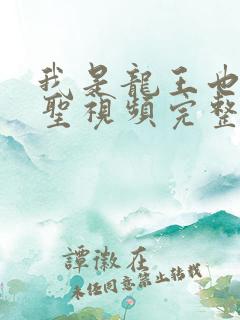 我是龍王也是
聖視頻完整
譚徽在
未经同意禁止转载